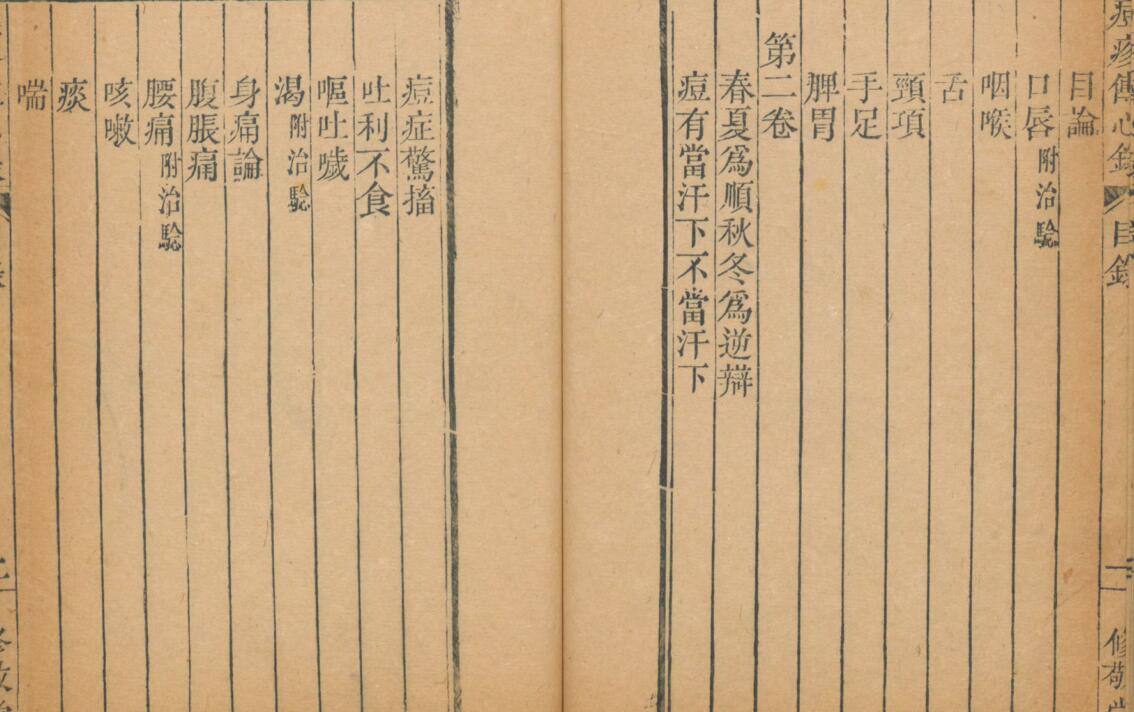 痘疹傳心錄 目錄 二 修敬堂
目論
口唇附治騐
咽喉
舌
頸項
手足
脾胃
第二卷
春夏爲順秋冬爲逆辯
痘有當汗下不當汗下
痘症驚搐
吐利不食
嘔吐噦
渴附治騐
身痛論
腹脹痛
腰痛附治騐
咳嗽
痰
喘